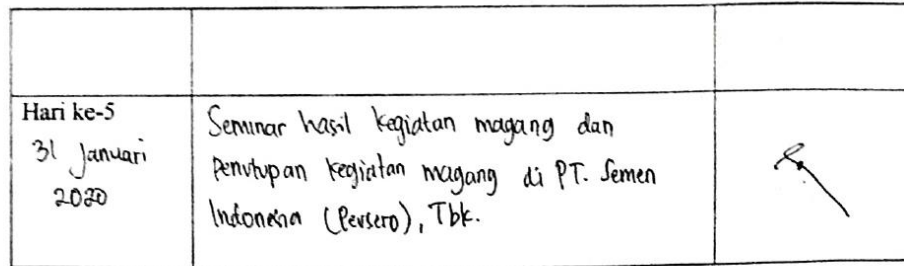 Hari ke-5
31 Januari
2020
Seminar hasil kegiatan magang dan
Penutupan kegiatan magang di PT. Semen
Indonesia (Persero), Tbk.